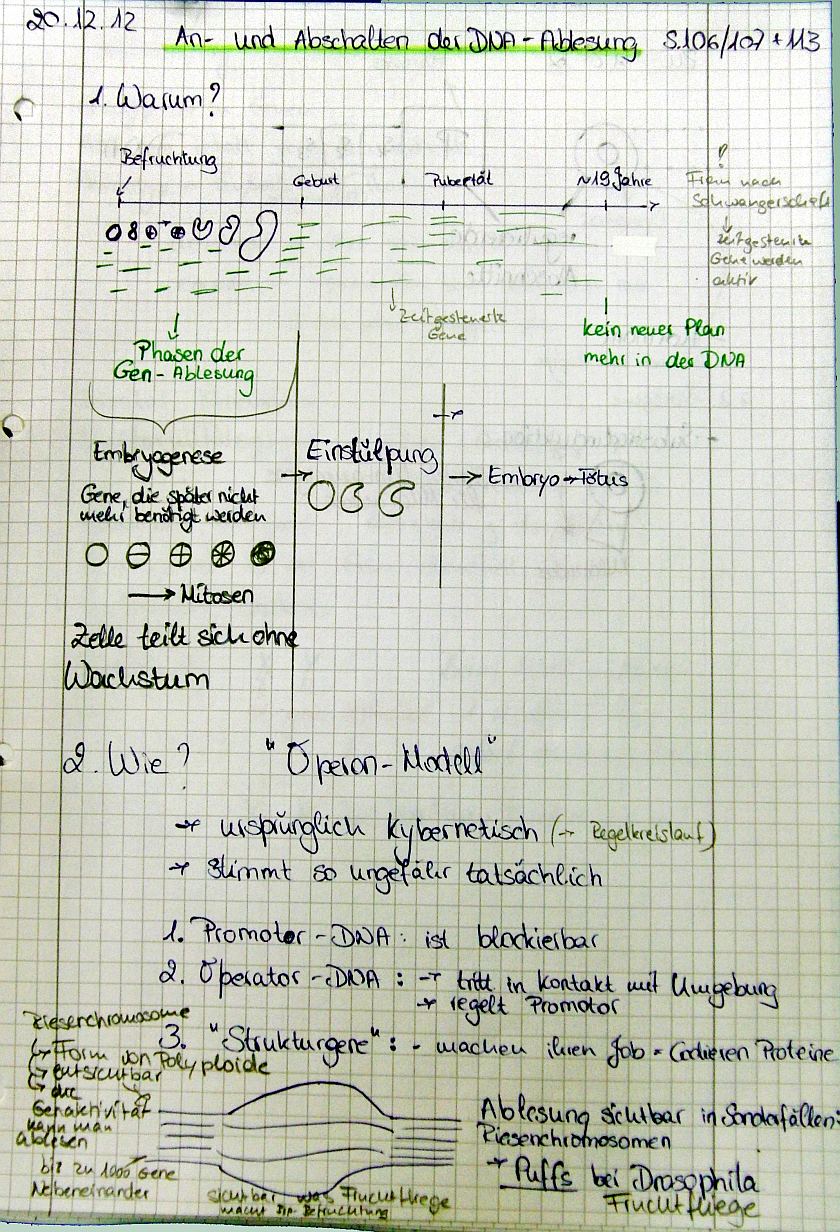 20.12.12
An- und Abschalten der DNA-Ablesung S.106/107 + 113
1. Warum?
Befruchtung
Geburt
Pubertät
~19 Jahre
nach
Schwangerschaft
zeitgesteuerte
Gene werden
aktiv
Zeitgesteuerte
Gene
kein neuer Plan
mehr in der DNA
Phasen der
Gen-Ablesung
Embryogenese
Gene, die später nicht
mehr benötigt werden
→ Mitosen
Zelle teilt sich ohne
Wachstum
Einstülpung
→ Embryo → Fötus
2. Wie? "Operon-Modell"
→ ursprünglich kybernetisch (→ Regelkreislauf)
→ stimmt so ungefähr tatsächlich
1. Promotor-DNA: ist blockierbar
2. Operator-DNA: → tritt in Kontakt mit Umgebung
→ regelt Promotor
3. "Strukturgene": - machen ihren Job = Codieren Proteine
Riesenchromosome
↳ Form von Polyploide
↳ gutsichtbar
↳ die
Genaktivität
kann man
ablesen
bis zu 1000 Gene
Nebeneinander
sichtbar was Fruchtfliege
macht Befruchtung
Ablesung sichtbar in Sonderfällen:
Riesenchromosomen
→ Puffs bei Drosophila
Fruchtfliege